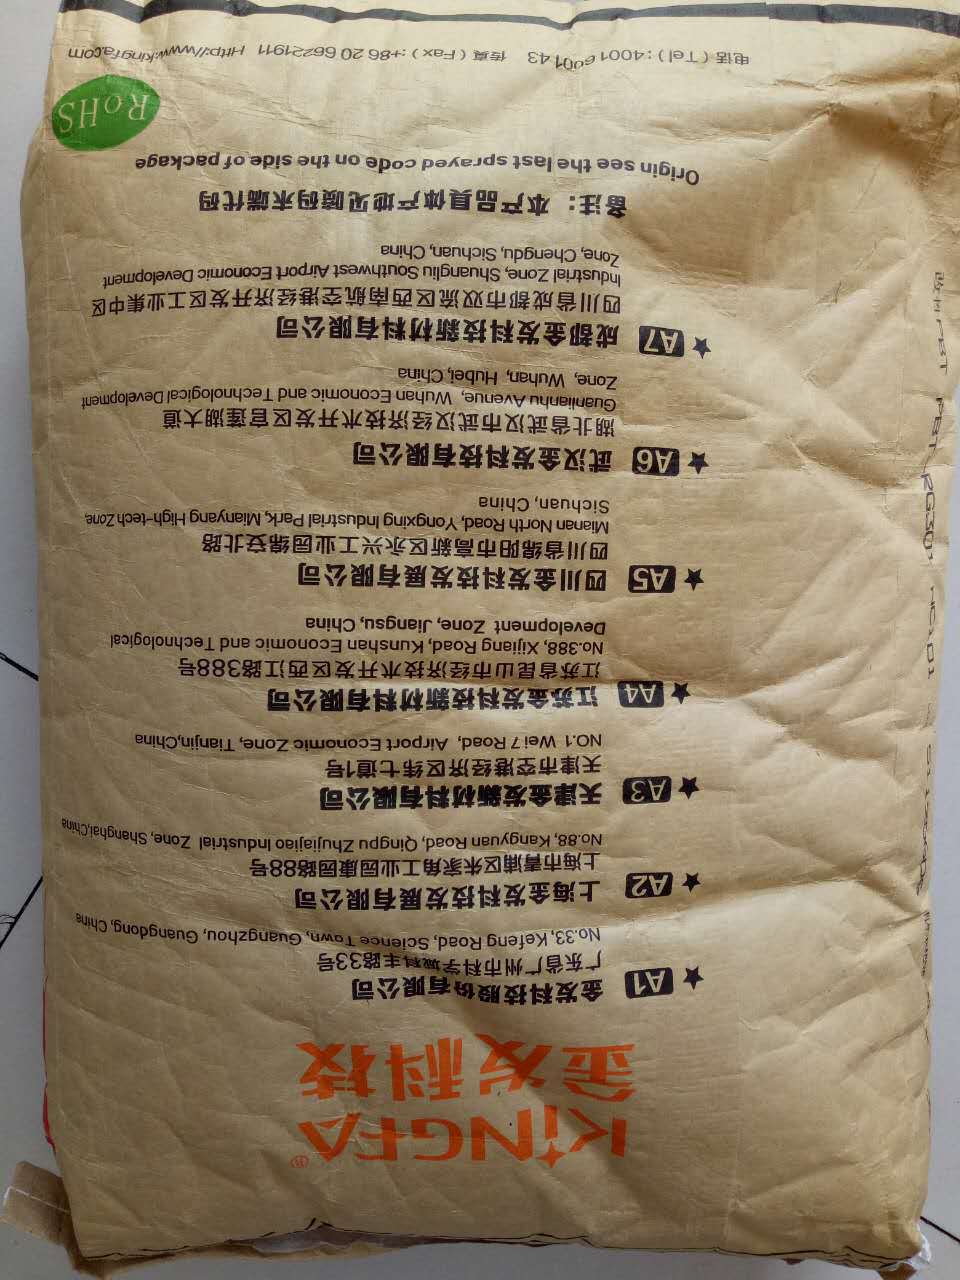 KiNGFA®
金发科技
★ A1 金发科技股份有限公司
广东省广州市科学城科丰路33号
No.33, Kefeng Road, Science Town, Guangzhou, Guangdong, China
★ A2 上海金发科技发展有限公司
上海市青浦区朱家角工业园康园路88号
No.88, Kangyuan Road, Qingpu Zhujiajiao Industrial Zone, Shanghai,China
★ A3 天津金发新材料有限公司
天津市空港经济区纬七道1号
NO.1 Wei 7 Road, Airport Economic Zone, Tianjin,China
★ A4 江苏金发科技新材料有限公司
江苏省昆山市经济技术开发区西江路388号
No.388, Xijiang Road, Kunshan Economic and Technological
Development Zone, Jiangsu, China
★ A5 四川金发科技发展有限公司
四川省绵阳市高新区永兴工业园绵安北路
Mianan North Road, Yongxing Industrial Park, Mianyang High-tech Zone,
Sichuan, China
★ A6 武汉金发科技有限公司
湖北省武汉市武汉经济技术开发区官莲湖大道
Guanlianhu Avenue, Wuhan Economic and Technological Development
Zone, Wuhan, Hubei, China
★ A7 成都金发科技新材料有限公司
四川省成都市双流区西南航空港经济开发区工业集中区
Industrial Zone, Shuangliu Southwest Airport Economic Development
Zone, Chengdu, Sichuan, China
备注：本产品具体产地见喷码末端代码
Origin see the last sprayed code on the side of package
RoHS
电话（Tel）:4001600143 传真（Fax）:+86 20 66221911 Http://www.kingfa.com
PBT PBT RG301